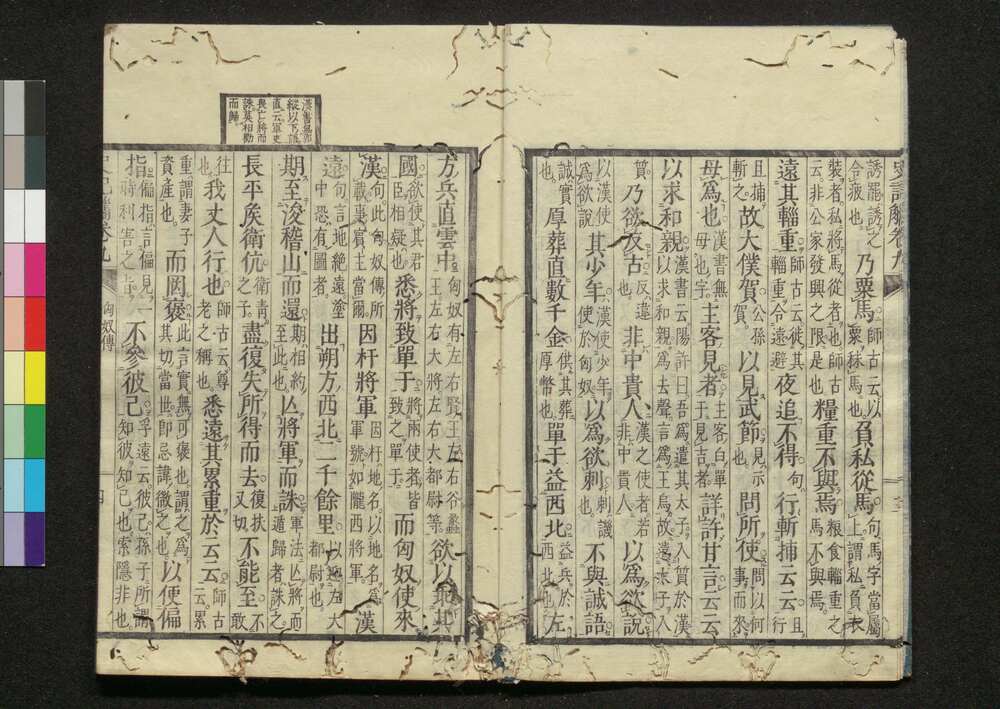 誘罷誘之令疲也乃粟馬師古云以粟秣馬也負私從馬句馬字當屬上謂私負衣
裝者私將馬從者也師古云非公家發興之限是也糧重不與焉粮食輜重之馬不與焉
遠其輜重師古云徙其輜重令遠避夜追不得句行斬捕云云且行
且捕斬之故大僕賀公孫賀以見武節見示也問所使問以何事而來
母爲也漢書無母也字主客見者主客白單于見吉者詳許甘言云云
以求和親漢書云陽許曰吾爲遣其太子入質於漢以求和親爲去聲言爲王烏故遣子入
質乃欲反古反違也非中貴人漢之使者若非中貴人以爲欲說
以漢使爲欲說其少年漢使少年使於匈奴以爲欲刺刺譏也不與誠語
誠實也厚葬直數千金供其葬厚幣也單于益西北益兵於西北也左
漢書無即
縱以下語
直云軍吏
畏亡將而
誅莫相勸
而歸
方兵直雲中匈奴有左右賢王左右谷蠡王左右大將左右大都尉等欲以報其
國欲使其君臣相疑也悉將致單于將兩使者皆致之單于而匈奴使來
漢句此匈奴傳所載事實主當爾因杅將軍因杅地名以地名爲軍號如隴西將軍漢
遠句言地絕遠塗中恐有圖者出朔方西北二千餘里以迎左大都尉也
期至浚稽山而還期相約至此也亾將軍而誅軍法亾將而遁歸者誅之
長平矦衛伉衛青之子盡復失所得而去復扶又切不能至不敢
往也我丈人行也師古云尊老之稱也悉遠其累重於云云師古云累
重謂妻子資產也而罔褒此言實無可褒也謂之爲其切當世即忌諱微之也以便偏
指偏指言偏見一時利害之言不參彼己孚遠云彼己孫子所謂知彼知己也索隱非也
匈奴傳
四